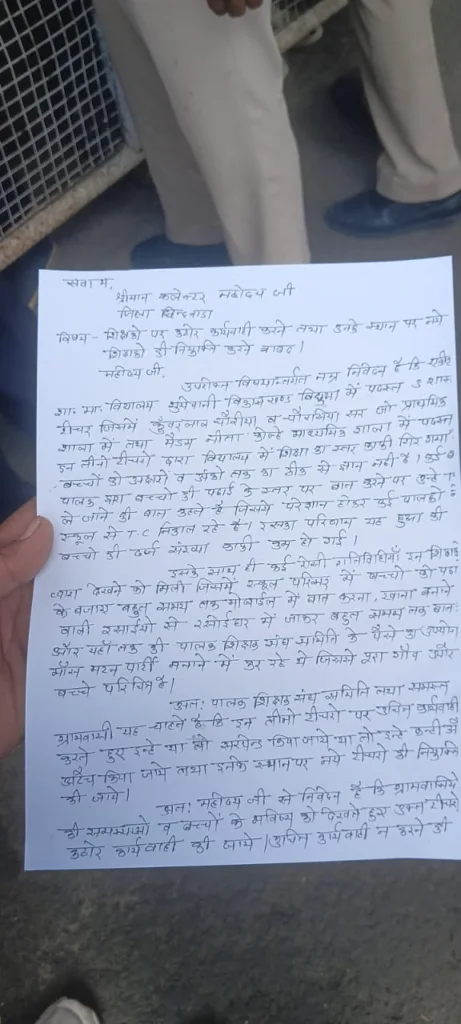 सेवा में,
श्रीमान कलेक्टर महोदय जी
जिला छिन्दवाडा
विषय - शिक्षको पर कठोर कार्यवाही करने तथा उनके स्थान पर नये
शिक्षको की नियुक्ति करने बाबत।
महोदय जी,
उपरोक्त विषयान्तर्गत नम्र निवेदन है कि
शा. मा. विद्यालय विकासखण्ड बिछुआ में पदस्त 3 शास.
टीचर जिसमें कुँवरलाल व सर जो प्राथमिक
शाला में तथा मेडम माध्यमिक शाला में पदस्त
इन तीनो टीचरो द्वारा विद्यालय में शिक्षा का स्तर काफी गिर गया
बच्चों को अक्षरो व अंको तक का ठीक से ज्ञान नही है। कई
पालक द्वारा बच्चो की पढाई के स्तर पर बात करने पर उन्हे
ले जाने की बात कहते है जिससे परेशान होकर कई पालको
स्कूल से T.C निकाल रहे है। इसका परिणाम यह हुआ की
बच्चो की दर्ज संख्या काफी कम हो गई।
इसके साथ ही कई ऐसी गतिविधियाँ इन शिक्षको
द्वारा देखने को मिली जिसमें स्कूल परिसर में बच्चो को पढा
के बजाय बहुत समय तक मोबाईल में बात करना, खाना बनाने
वाली रसोईयो से रसोई घर में जाकर बहुत समय तक बात
और यहाँ तक की पालक शिक्षक संघ समिति के पैसे का उपयोग
पार्टी मनाने में कर रहे थे जिससे पूरा गाँव और
बच्चे परिचित है।
अतः पालक शिक्षक संघ समिति तथा समस्त
ग्रामवासी यह चाहते है कि इन तीनो टीचरो पर उचित कार्यवाही
करते हुए इन्हे या तो सस्पेन्ड किया जाये या तो इन्हे कही और
अटैच किया जाये तथा इनके स्थान पर नये टीचरो की नियुक्ति
की जाये।
अतः महोदय जी से निवेदन है कि ग्रामवासियो
की समस्याओ व बच्चों के भविष्य को देखते हुए उक्त टीचरो
कठोर कार्यवाही की जाये। उचित कार्यवाही न करने की